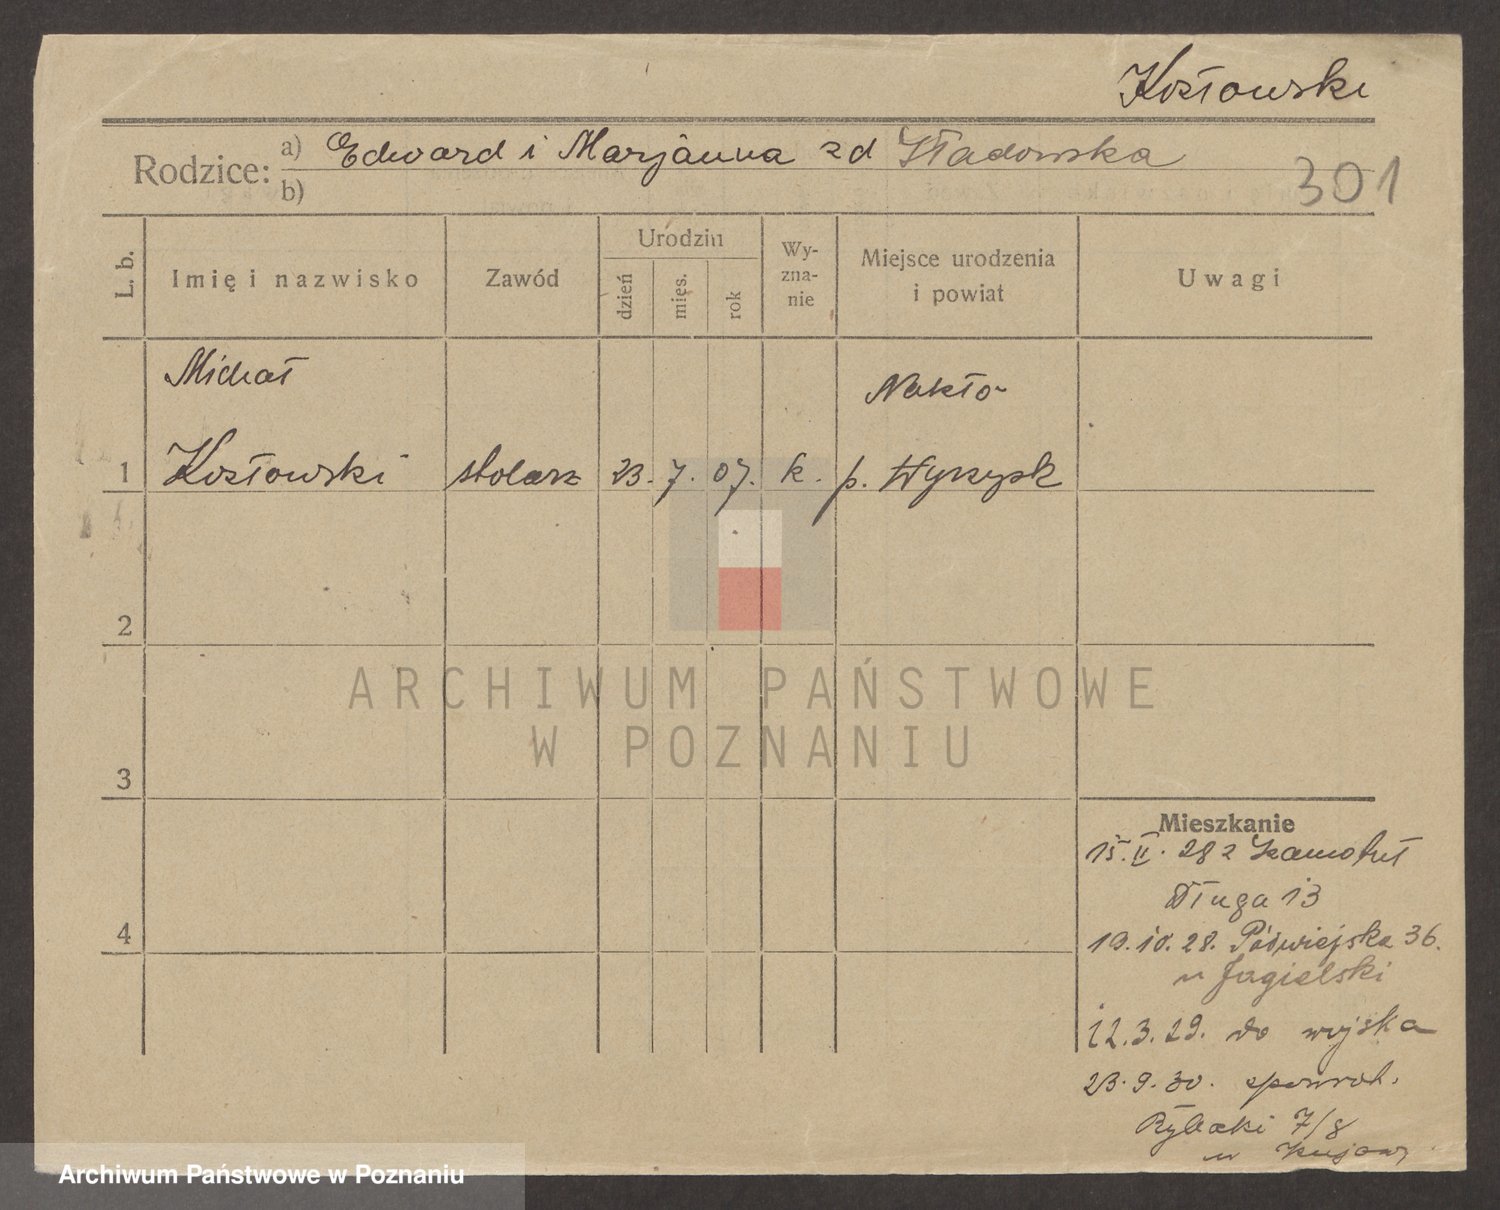 Kozłowski
Rodzice: a) Edward i Marjanna zd
b)
301
L. b.
Imię i nazwisko
Zawód
Urodzin
dzień
mies.
rok
Wy-
zna-
nie
Miejsce urodzenia
i powiat
Uwagi
Michał
Nakło
1 Kozłowski stolarz 23. 7. 07. k. p. Wyrzysk
2
ARCHIWUM PAŃSTWOWE
W POZNANIU
3
Mieszkanie
15. II. 28 z Szamotuł
Długa 13
4
19.10.28. Półwiejska 36.
u Jagielski
12.3.29. do wojska
23.9.30. spowrot.
Rybaki 7/8
u
Archiwum Państwowe w Poznaniu